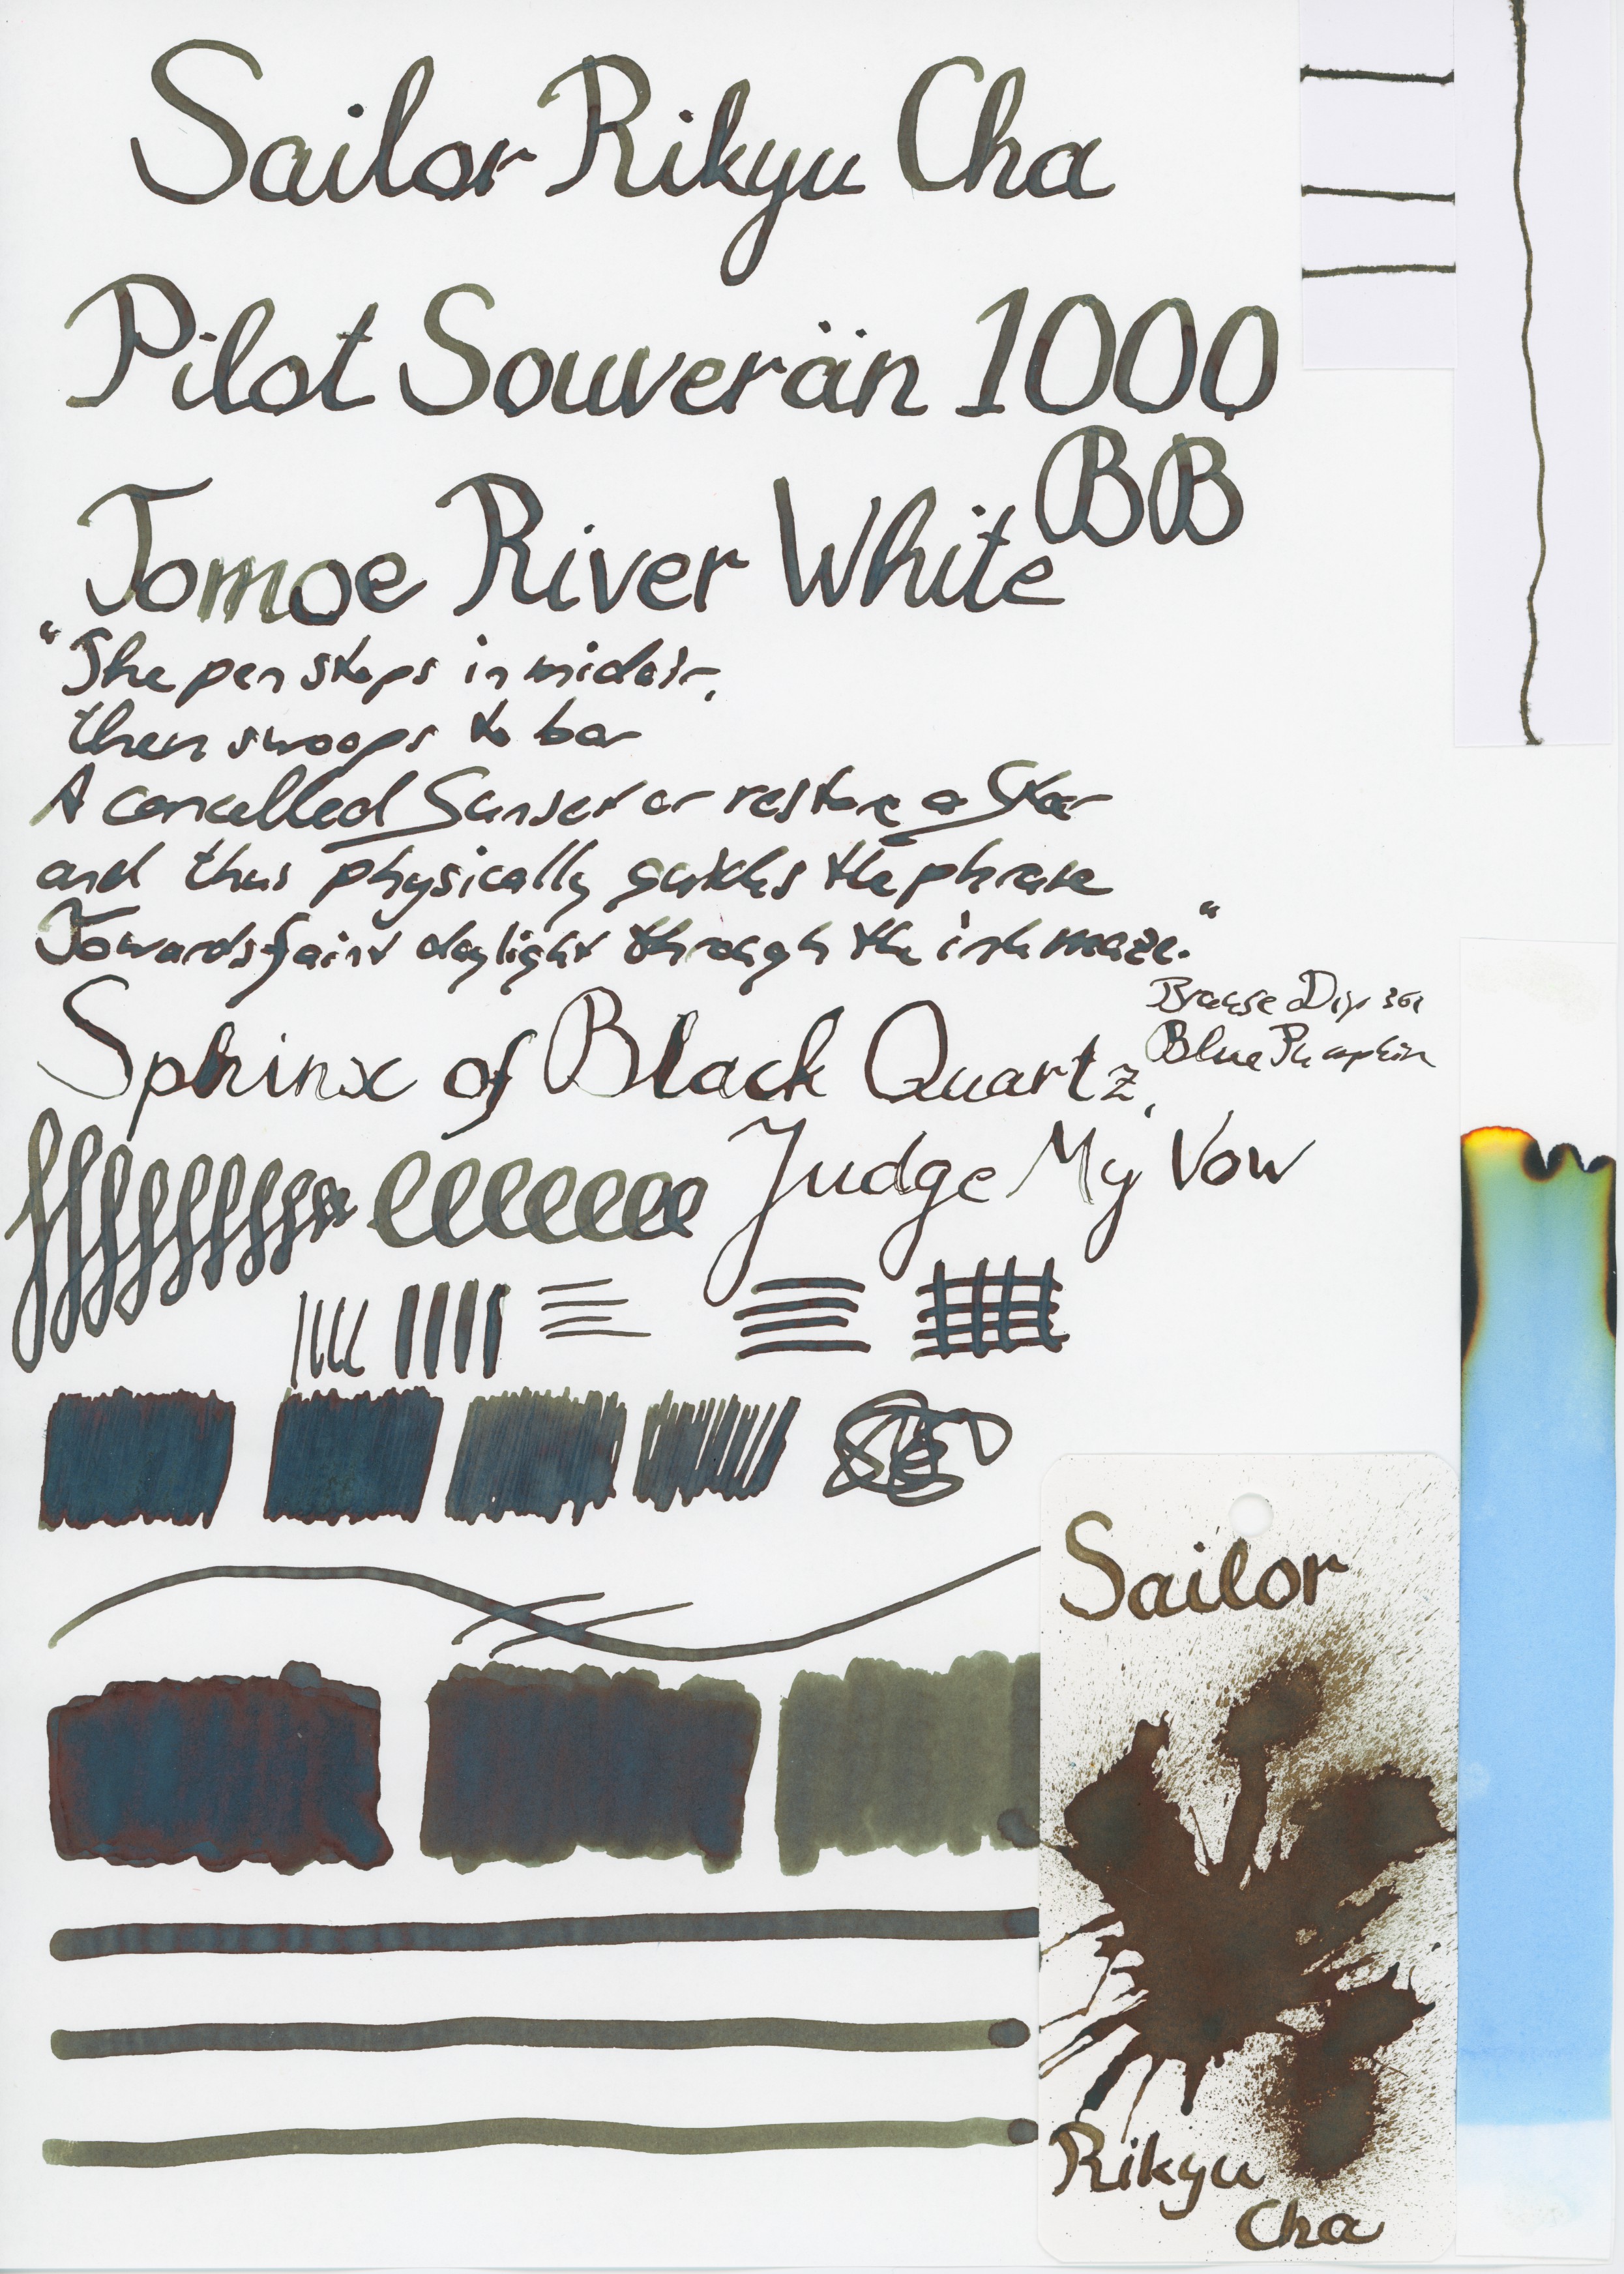 Sailor Rikyu Cha
Pilot Souverän 1000
BB
Tomoe River White
"The pen stops in midair,
then swoops to bar
A cancelled Sunset or restore a Star
and thus physically guides the phrase
Towards faint daylight through the ink maze."
Brause Dip 361
Blue Pumpkin
Sphinx of Black Quartz,
Judge My Vow
Sailor
Rikyu
Cha